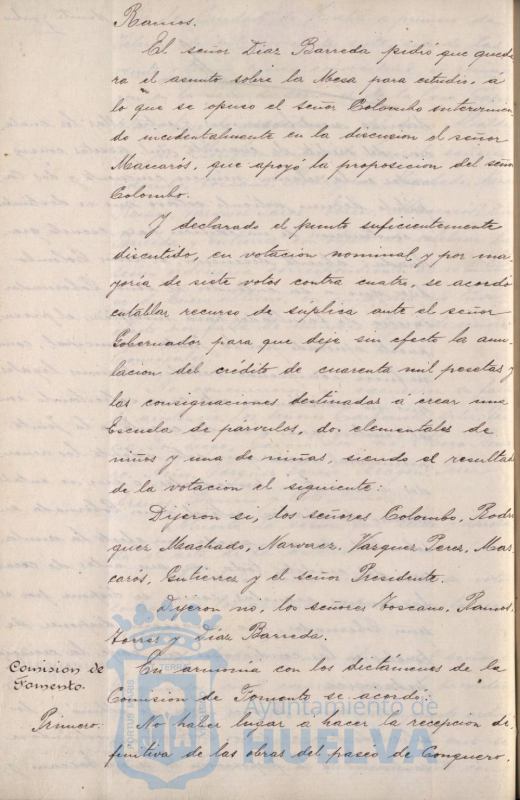 Ramos.
El señor Diaz Barreda pidió que queda-
ra el asunto sobre la Mesa para estudio, á
lo que se opuso el señor Colombo intervinien-
do incidentalmente en la discusion el señor
Macarós, que apoyó la proposicion del señor
Colombo.
Y declarado el punto suficientemente
discutido, en votacion nominal y por ma-
yoría de siete votos contra cuatro, se acordó
entablar recurso de súplica ante el señor
Gobernador para que deje sin efecto la anu-
lacion del crédito de cuarenta mil pesetas y
las consignaciones destinadas á crear una
Escuela de párvulos, dos elementales de
niños y una de niñas, siendo el resultado
de la votacion el siguiente:
Dijeron si, los señores Colombo, Rodri-
guez Machado, Narvaez, Vazquez Perez, Mac-
carós, Gutierrez y el señor Presidente.
Dijeron no, los señores Toscano, Ramos,
Torres y Diaz Barreda.
Comision de
Fomento.
En armonía con los dictámenes de la
Comision de Fomento se acordó:
Primero:
No haber lugar a hacer la recepcion de-
finitiva de las obras del paseo de Conquero,
PORTUS MARIS
TERRAE
Ayuntamiento de
HUELVA